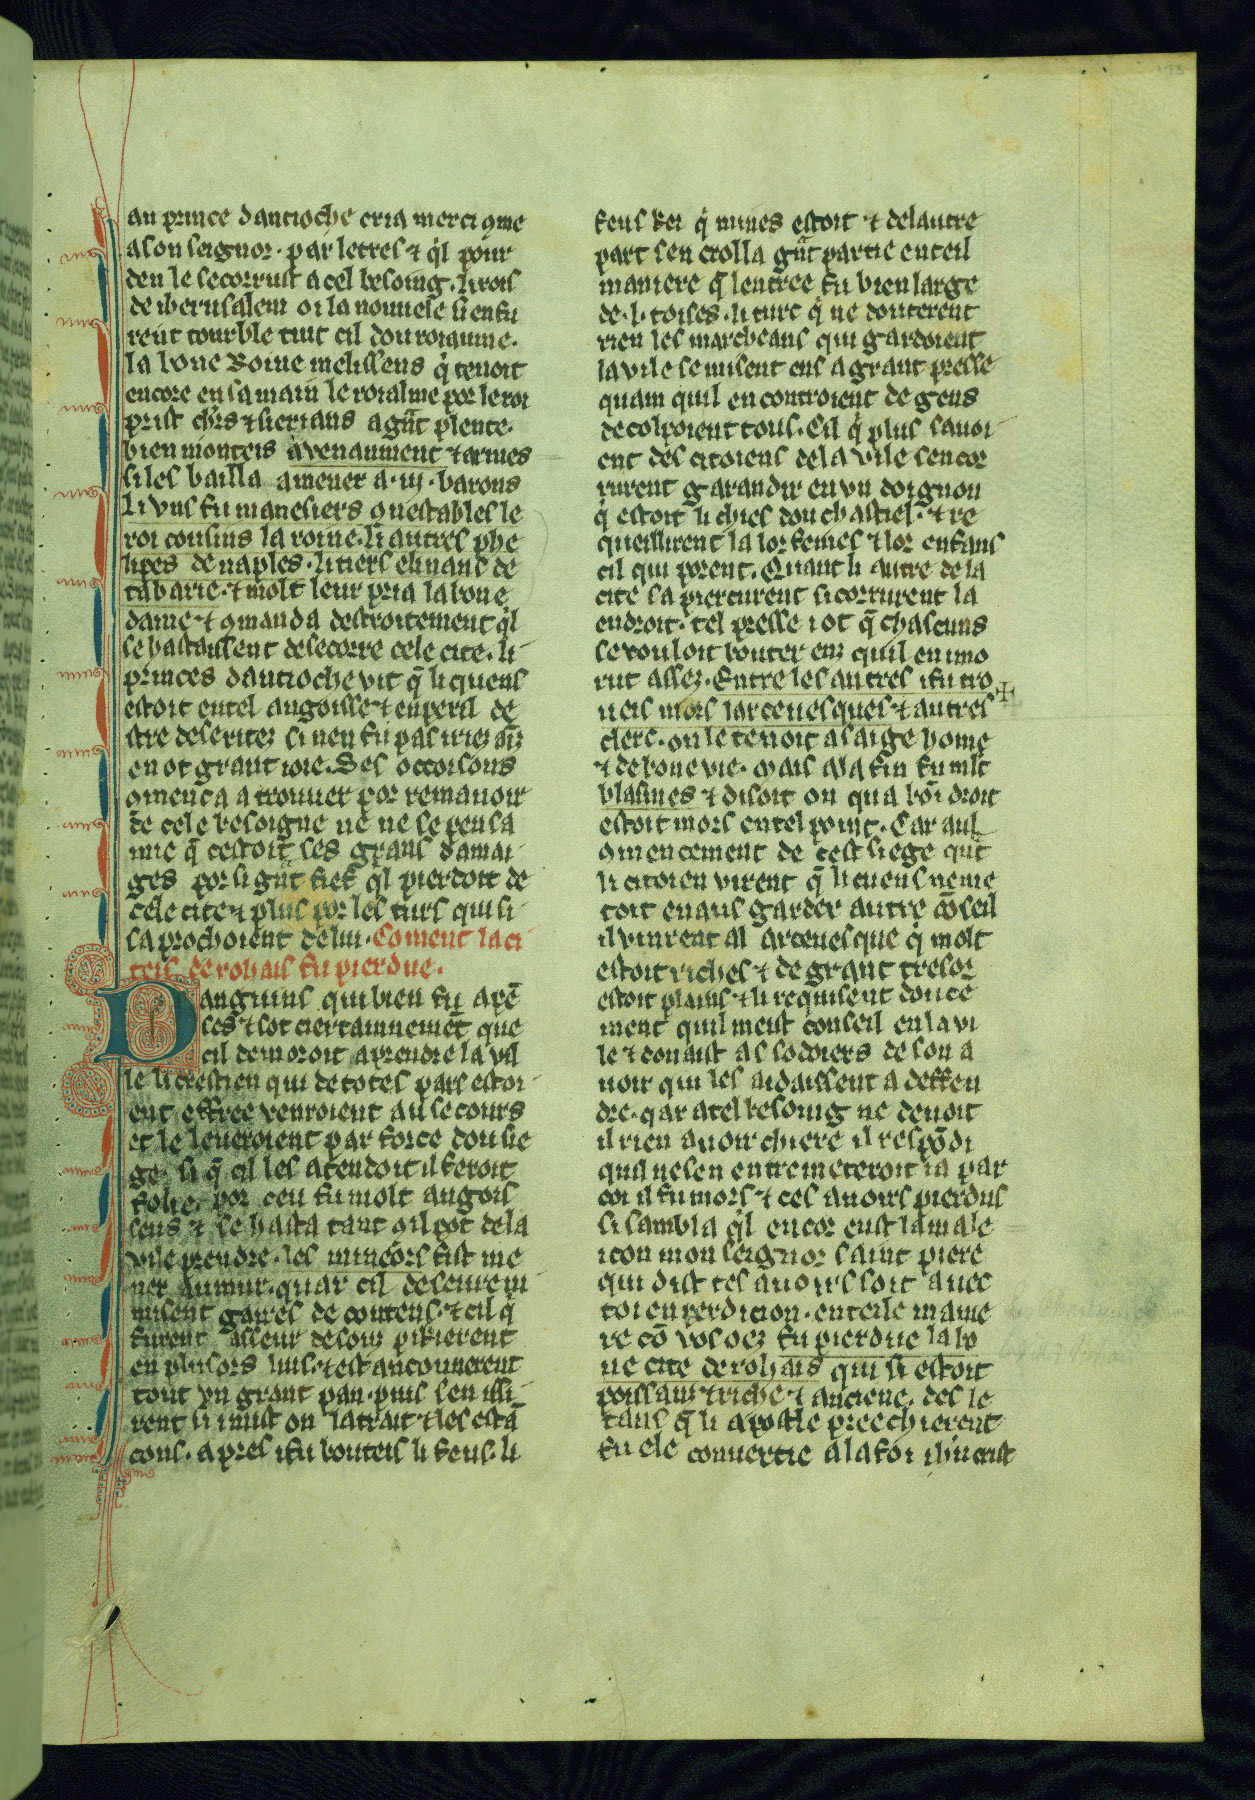 au prince dantioche cria merci ɔme
a son seignor. par letres ⁊ q̓l pour
deu le secorruist a cel besoing. li rois
de iherusalem oi la nouuele si en fu
rent tourble tuit cil dou roiaume.
la bone Roine melissens q̓ tenoit
encore en sa main le roialme por le roi
prist chr̄s ⁊ sierians a gr̄t plente.
bien monteis auenaument ⁊ armes
si les bailla a mener a .iij. barons
li vns fu manesiers ɔnestables le
roi cousins la roine. li autres phe
lipes de naples. li tiers elinans de
tabarie. ⁊ molt leur pria la bone
dame ⁊ ɔmanda destroitement q̓l
se hastaissent de secorre cele cite. li
princes dantioche vit q̄ li quens
estoit en tel angoisse ⁊ en peril de
stre deseritez si nen fu pas iriez ainz
en ot grant ioie. Ses occoisons
ɔmenca a trouuer por remanoir
de cele besoigne ne ne se pensa
mie q̄ cestoit ses grans damai
ges por si gr̄t fief q̓l pierdoit de
cele cite ⁊ plus por les turs qui si
saprochoient de lui. Coment la ci
teis de rohais fu pierdue.
Sanguins qui bien fu apē
ses ⁊ sot ciertainnemēt que
cil demoroit a prendre la vil
le li crestien qui de totes pars estoi
ent effree venroient au secours
et le leueroient par force dou sie
ge. si q̄ cil les atendoit il feroit
folie. por ceu fu molt angois
seus ⁊ se hasta tant ɔ il pot de la
vile prendre. les mineors fist me
ner au mur. quar cil deseure m
misent gares de coutens. ⁊ cil q̓
furent asseur desouz pikierent
en plusors lius. ⁊ estanconnerent
tout vn grant pan. puis sen issi
rent si mist on latrait ⁊ les estā
cons. apres i fu bouteis li feus. li
feus kei q̓ mines estoit ⁊ de lautre
part sen crolla gr̄t partie en teil
maniere q̄ lentree fu bien large
de .l. toises. li turc q̓ ne douterent
rien les marcheans qui gardoient
la vile se misent ens a grant presse
quam quil encontroient de gens
decolpoient tous. Cil q̓ plus sauoi
ent des citoiens de la vile sencor
rurent garandir en vn doignon
q̓ estoit li chies dou chastiel. ⁊ re
queillirent la lor femes ⁊ lor enfans
cil qui porent. Quant li autre de la
cite sa piercurent si corrurent la
endroit. tel presse i ot q̄ chascuns
se vouloit bouter enz quil en mo
rut assez. Entre les autres i fu tro
ueis mors larceuesques ⁊ autres
clerc. on le tenoit a saige home
⁊ de bone vie. mais a la fin fu mlt̄
blasmes ⁊ disoit on qua bōi droit
estoit mors en tel point. Car au
ɔmencement de cest siege qūt
li citoien virent q̄ li cuens ne me
toit en aus garder autre ɔ̄seil
il vinrent al arceuesque q̓ molt
estoit riches ⁊ de grant tresor
estoit plains ⁊ li requisent douce
ment quil meist conseil en la vi
le ⁊ donaist as sodoiers de son a
uoir qui les aidaissent a deffen
dre. qar a tel besoing ne deuoit
il rien auoir chiere il respōdi
quil ne sen entremeteroit ia par
coi il fu mors ⁊ ces auoirs pierdus
si sambla q̓l encor eust la male
icon mon seignor saint piere
qui dist tes auoirs soit auec
toi en perdicion. en teile manie
re cō vos oez fu pierdue la bo
ne cite de rohais qui si estoit
poissans ⁊ riche ⁊ anciene. des le
tans q̄ li apostle preechierent
fu ele conuertie a la foi ihū crist